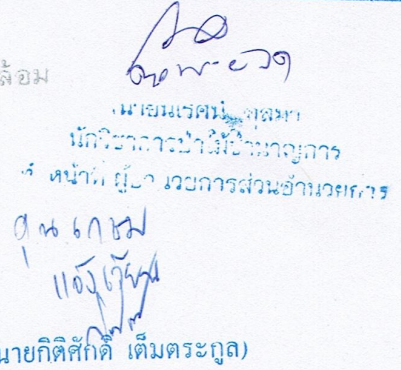 ล้อม
นายนเรศน์ ตุลมา
นักวิชาการป่าไม้ชำนาญการ
หน้าที่ ผู้อำนวยการส่วนอำนวยการ
คุณเกษม
แจ้งเวียน
นายกิติศักดิ์ เต็มตระกูล)